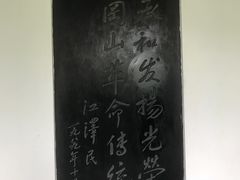 和发扬光荣
冈山革命传统
江泽民
一九八九年十